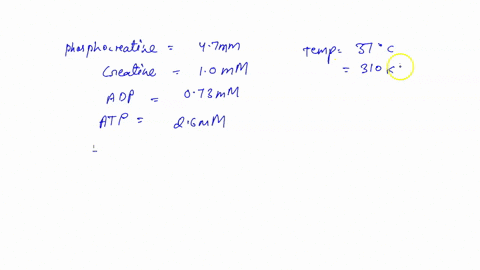 phosphocreatine = 4.7mM
creatine = 1.0 mM
ADP = 0.73mM
ATP = 2.6mM
Temp = 37°C
= 310 K